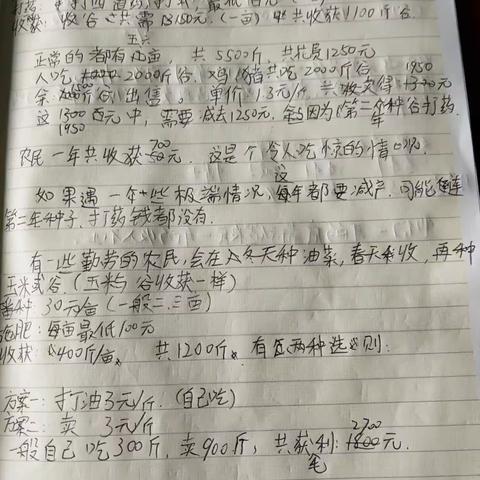 收割: 收谷 共需 150元.(一亩) 共收获1100斤谷.
五亩
正常的都有几亩, 共5500斤, 共花费1250元
人吃 2000斤谷. 鸡 猪共吃 2000斤谷
1950
余 1500斤谷, 出售. 单价1.3元/斤 共收获得 元
这 元中, 需要减去1250元, 因为第二个种谷打药.
1950 年
700
农民一年共收获 元. 这是个令人吃惊的情况.
这
如果遇一年一些极端情况, 每年都要减产. 可能连
第二年种子, 打药钱都没有.
有一些勤劳的农民, 会在入冬天种油菜, 春天收, 再种
玉米或谷(玉米与谷收获一样)
30元/亩 (一般二、三亩)
施肥: 每亩最低100元
收获: 400斤/亩. 共1200斤. 有两种选则:
方案一: 打油3元/斤. (自己吃)
方案二: 卖 3元/斤
2700
一般自己吃300斤, 卖900斤, 共获利: 元.